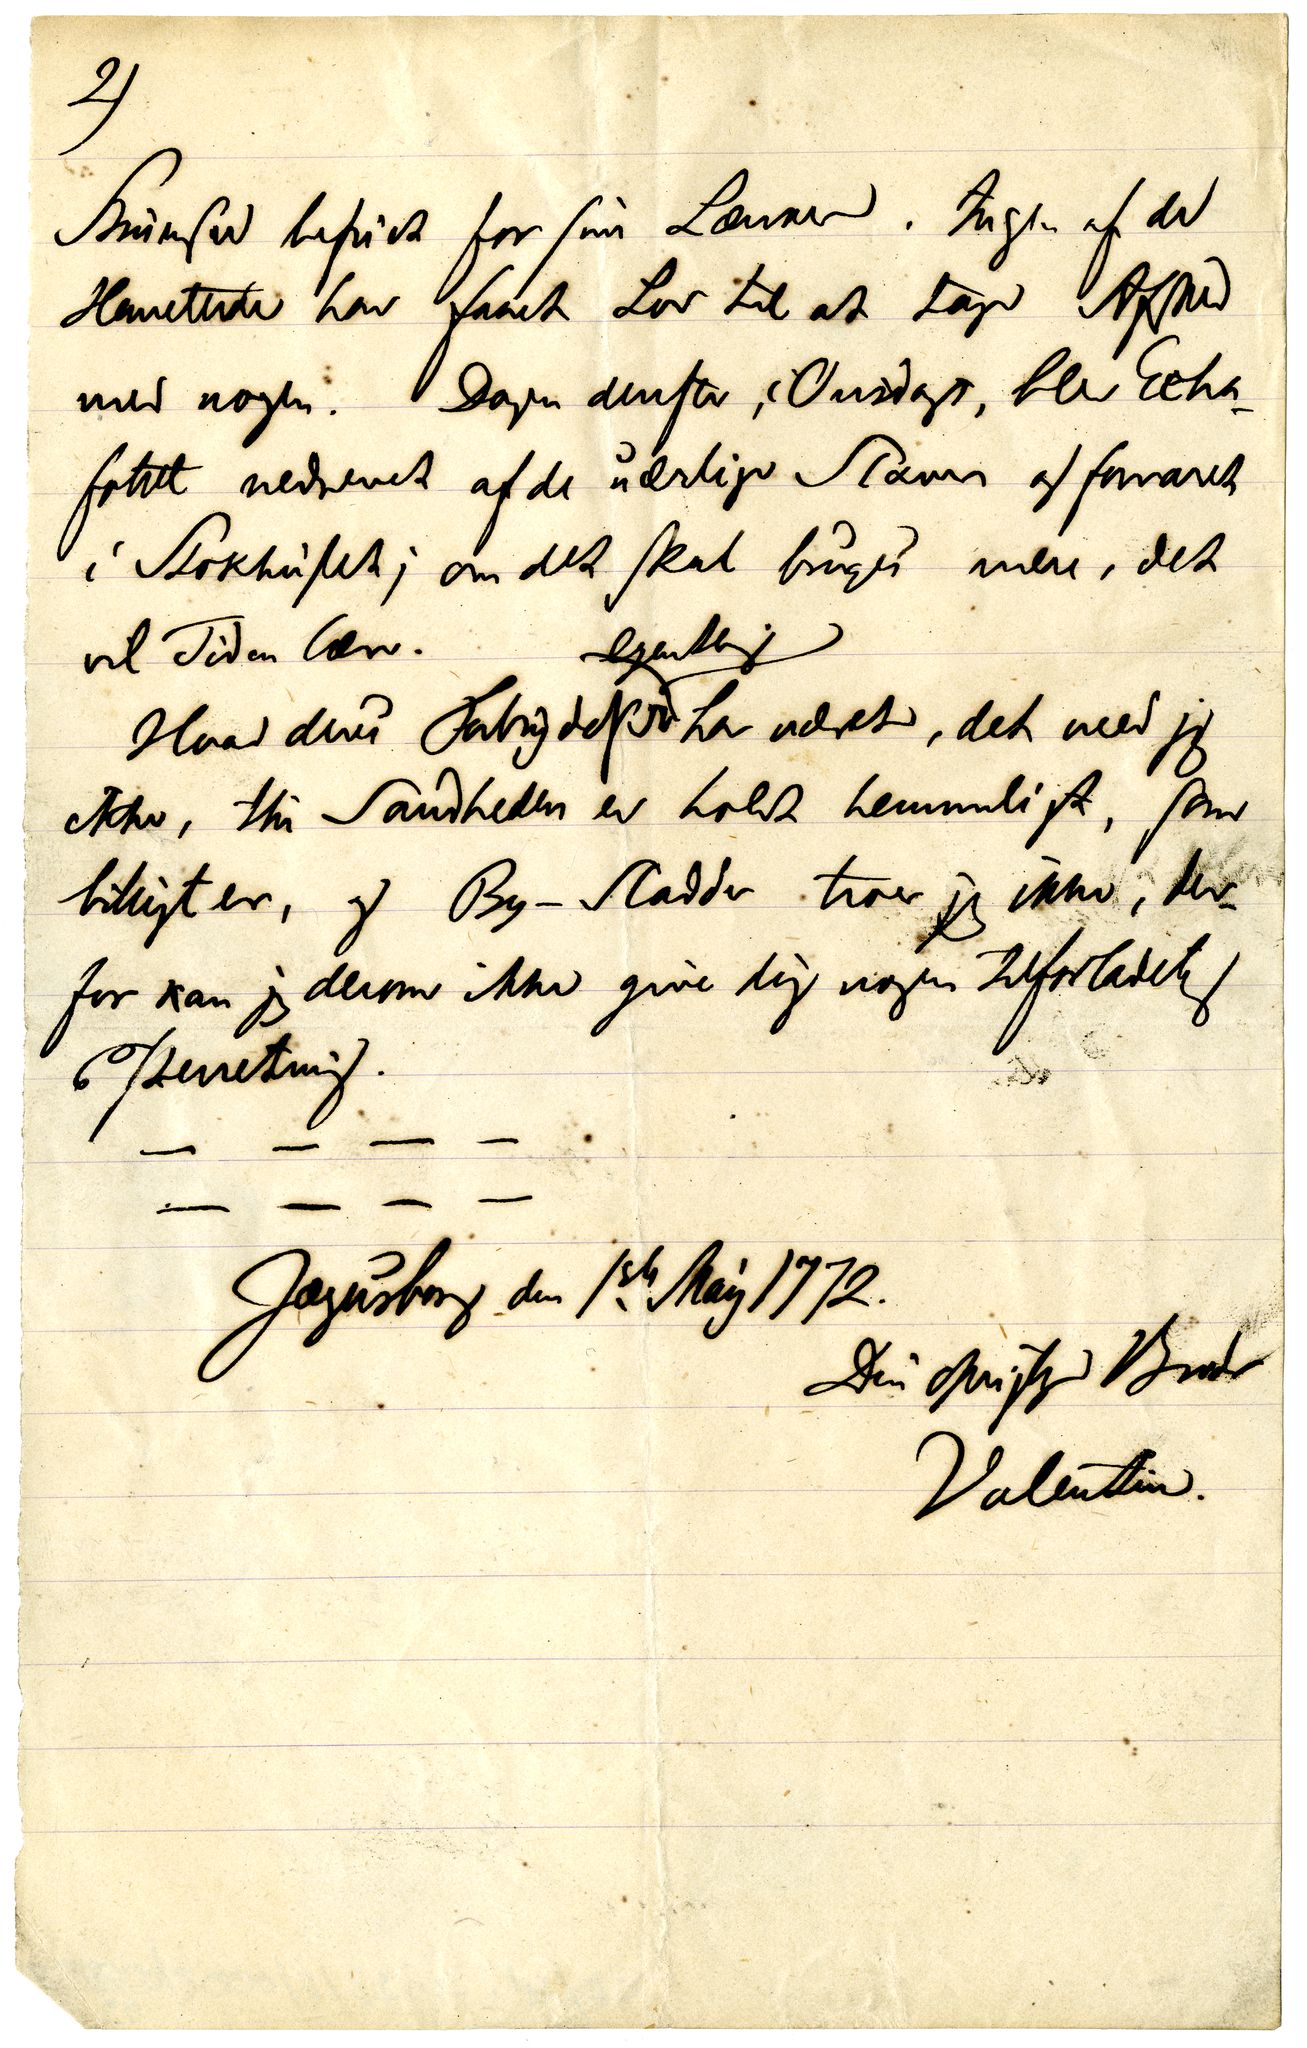 2)
Struensee befriet for sine Lænker. Ingen af de
Henrettede har faaet Lov til at tage Afsked
med nogen. Dagen derefter, i Onsdags, blev Echa-
fottet nedrevet af de uærlige Slaver og forvaret
i Stokhuset; om det skal bruges mere, det
vil Tiden lære.
egentlig
Hvad deres Forbrydelse har været, det veed jeg
ikke, thi Sandheden er holdt hemmeligt, som
billigt er, og By-Sladder troer jeg ikke, der-
for kan jeg derom ikke give dig nogen tilforladelig
Efterretning.
— — — —
— — — —
Jægersborg den 1ste May 1772.
Din oprigtige Broder
Valentin.